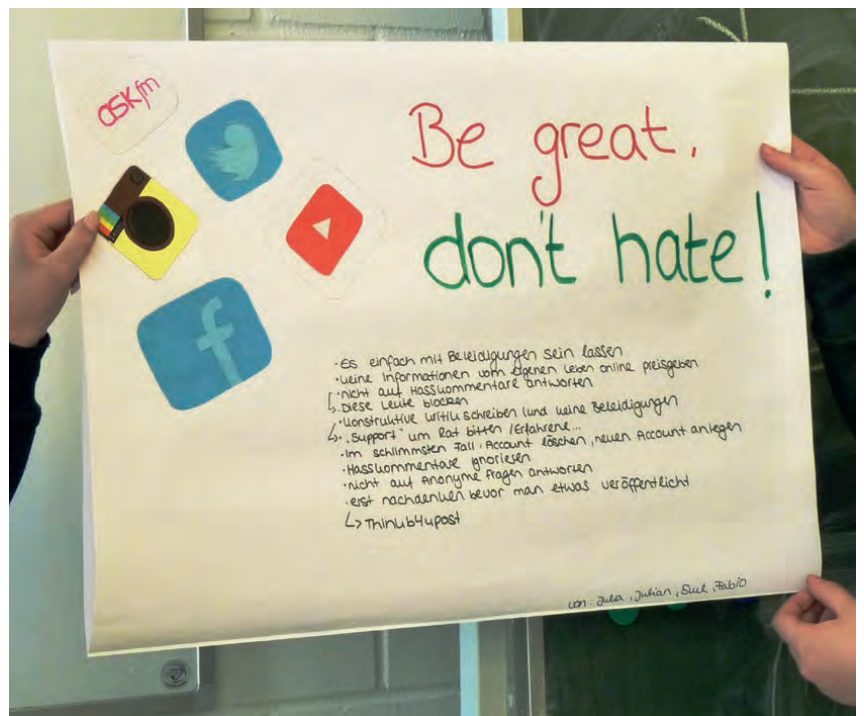 askfm
Be great.
don't hate!
f
· Es einfach mit Beleidigungen sein lassen
· keine Informationen vom eigenen Leben online preisgeben
· nicht auf Hasskommentare antworten
↳ · Diese Leute blocken
· Konstruktive Kritik schreiben (und keine Beleidigungen
↳ · "Support" um Rat bitten / Erfahrene...
· Im schlimmsten Fall · Account löschen, neuen Account anlegen
· Hasskommentare ignorieren
· nicht auf Anonyme Fragen antworten
· erst nachdenken bevor man etwas veröffentlicht
↳ Thinkb4upost
von: Julian, Fabio